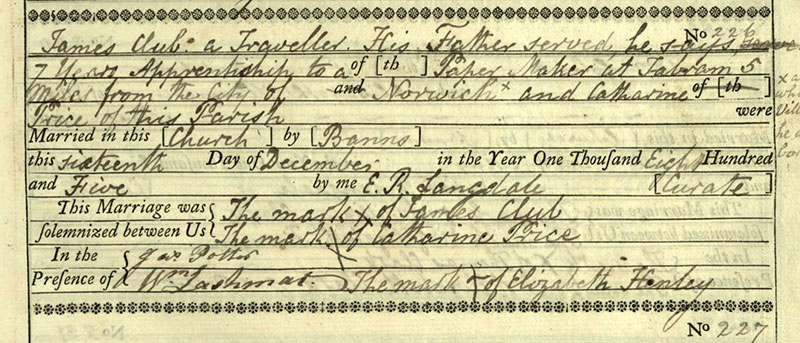 No 226
James Club a Traveller. His Father served he says
7 Years Apprentiship to a of [th ] Paper Maker at Tabram 5
Miles from the City of and Norwich x and Catharine of [th
Price of this Parish were
Married in this [Church] by [Banns]
this sixteenth Day of December in the Year One Thousand Eight Hundred
and Five by me E. R. Langdale [Curate]
This Marriage was { The mark x of James Club
solemnized between Us { The mark x of Catharine Price
In the { Jas Potter
Presence of { Wm Lashmar. The mark x of Elizabeth Henley
No 227